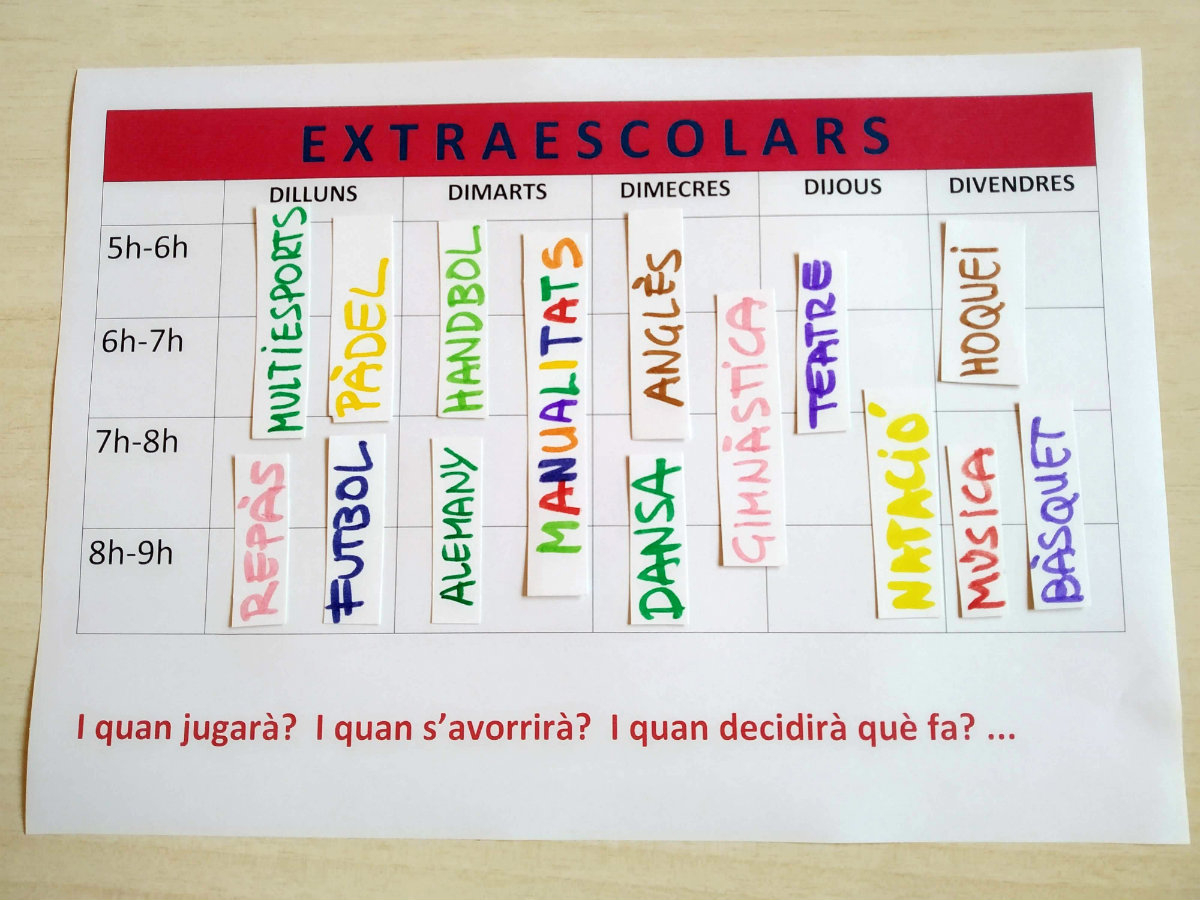 EXTRAESCOLARS
DILLUNS DIMARTS DIMECRES DIJOUS DIVENDRES
5h-6h
6h-7h
7h-8h
8h-9h
MULTIESPORTS
PÀDEL
REPÀS
FUTBOL
HANDBOL
ALEMANY
MANUALITATS
ANGLÈS
DANSA
GIMNÀSTICA
TEATRE
NATACIÓ
HOQUEI
MÚSICA
BÀSQUET
I quan jugarà? I quan s'avorrirà? I quan decidirà què fa? ...